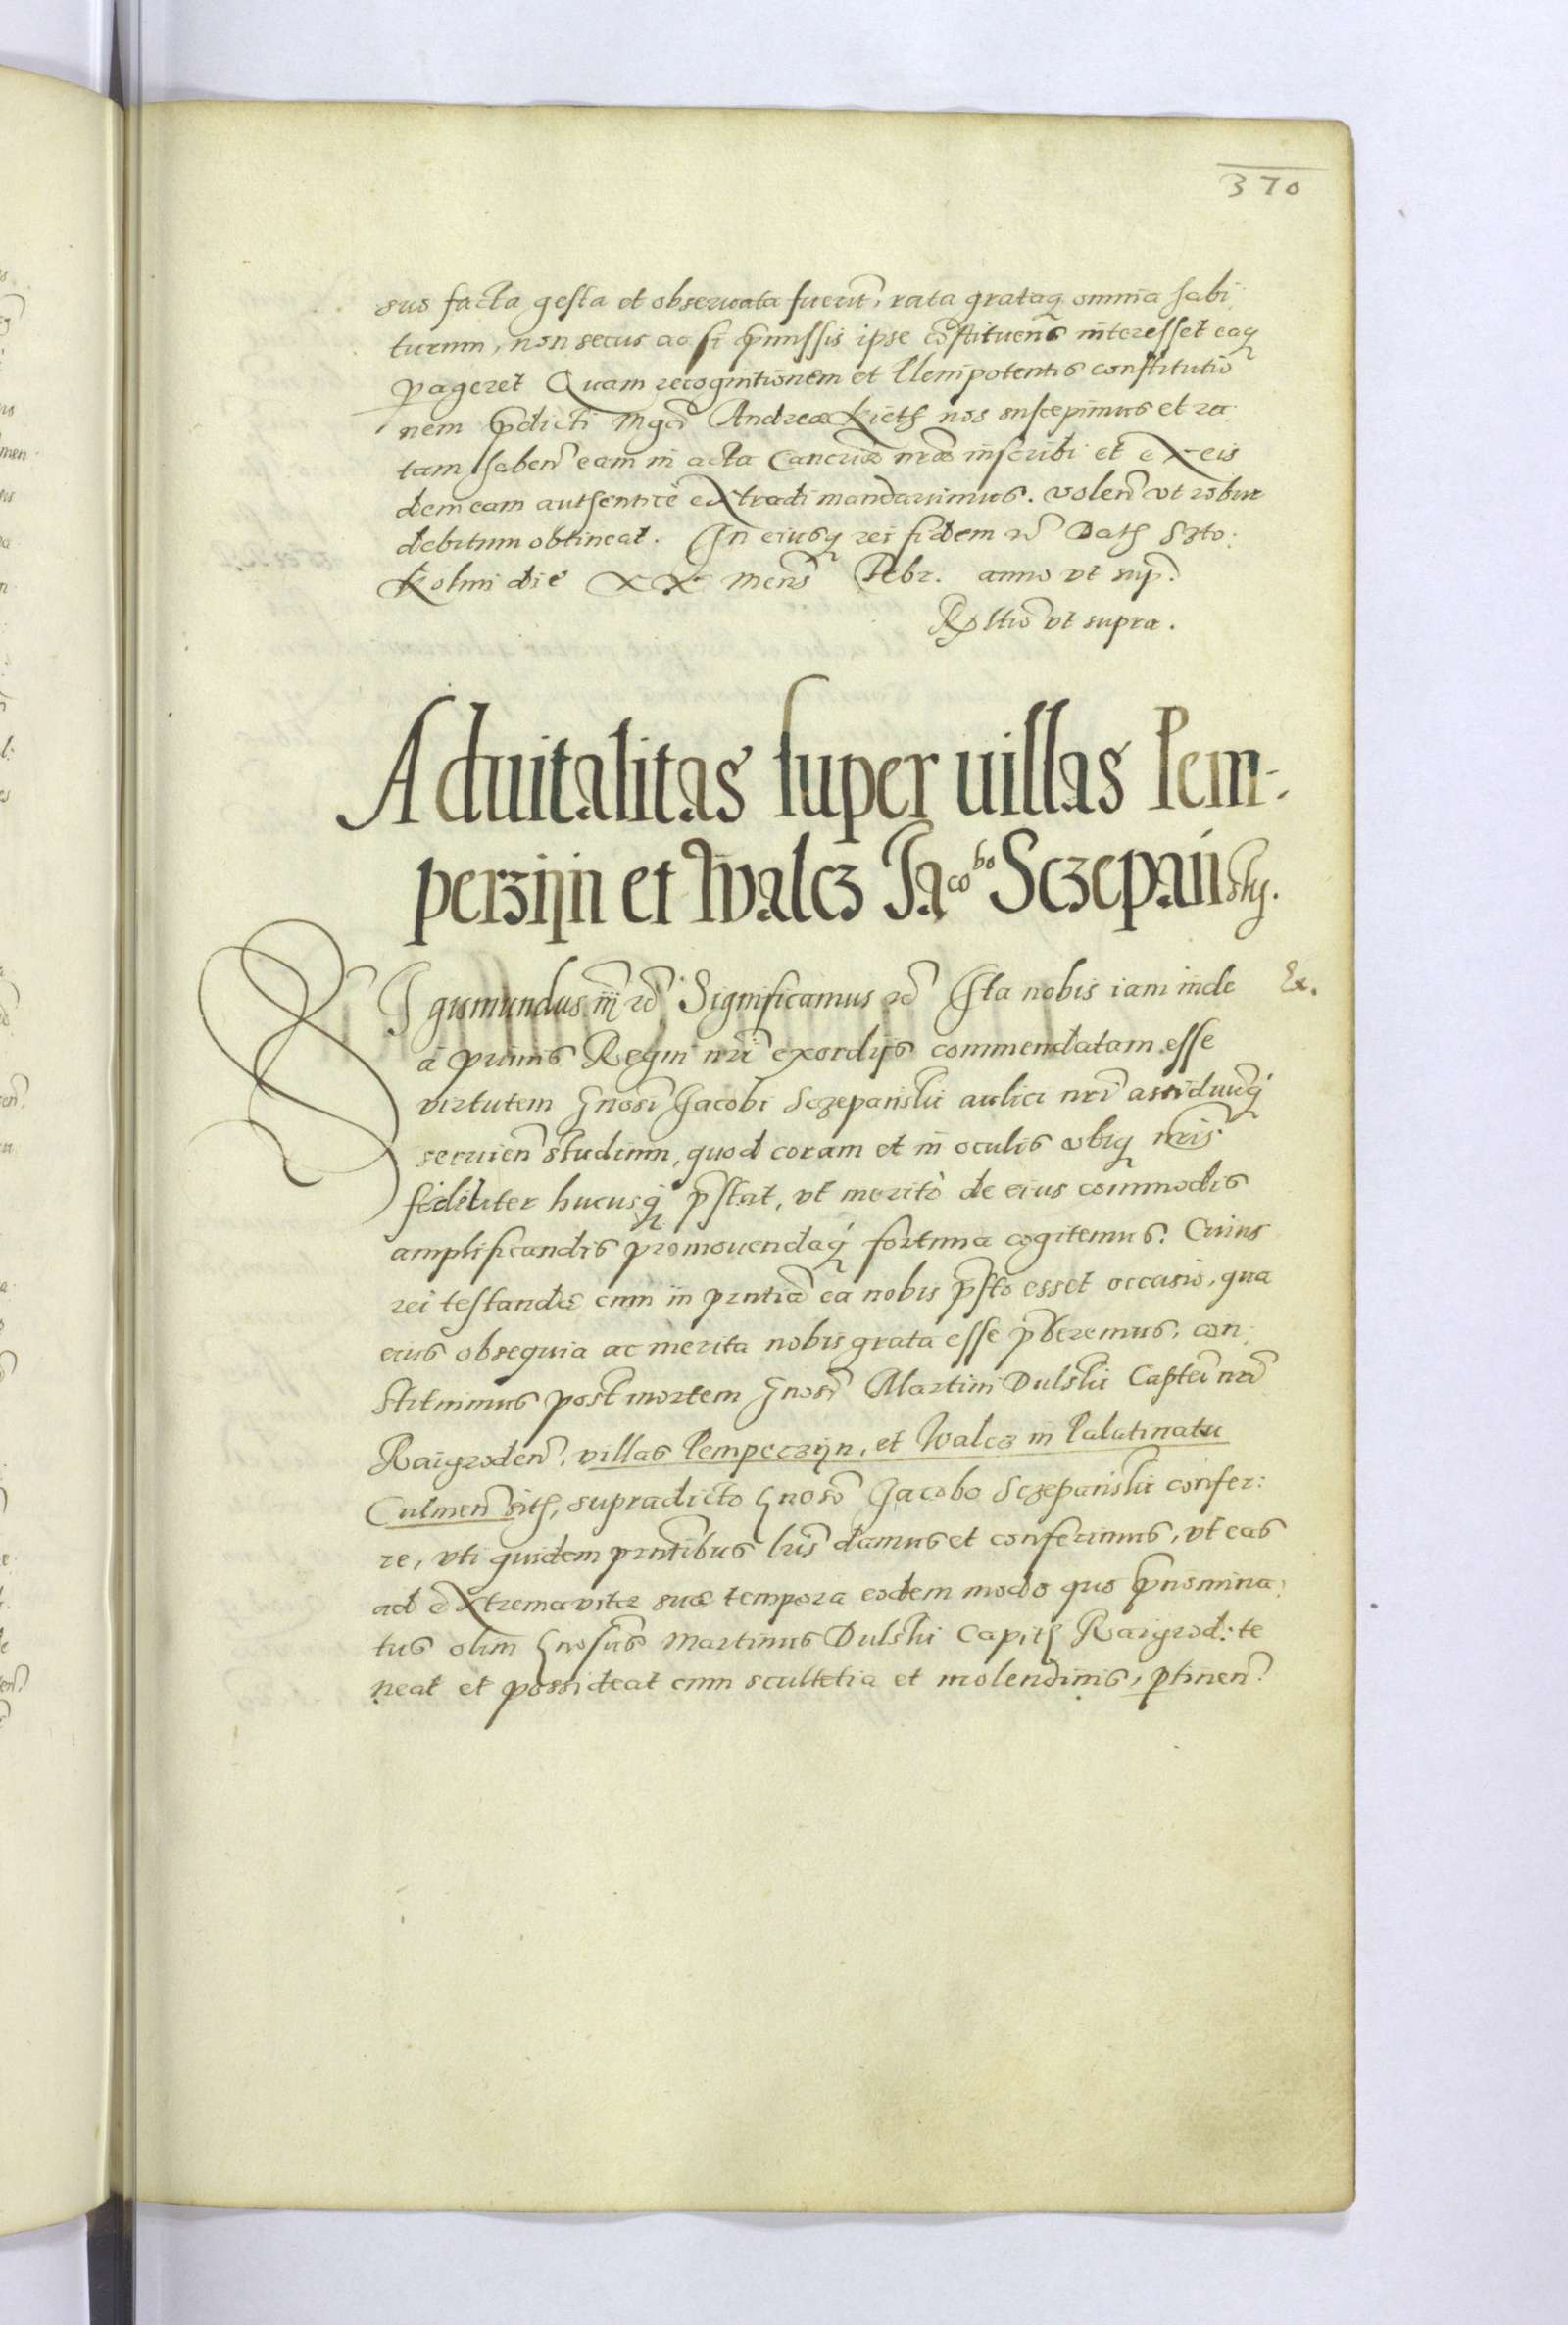 370
suo facta gesta et observata fuerīt, rata grataq̃ omnia habi
turum, non secus ac si p̄missis ipse cōstituens interesset eaq̃
p̱ageret Quam recognitionem et Plenipotentis constitutio
nem p̄dicti Mgcī Andreæ Lieth nos suscepimus et ra
tam haben̄ eam in acta Cancriæ nr̄æ inscribi et ex eis
dem eam authenticè extradi mandavimus. volen̄ vt robur
debitum obtineat. In eiusq̃ rei fidem etc̄ Dath Szto:
kolmi die XX mens̄ Febr. anno vt sup̄.
Rltio vt supra.
Advitalitas super villas Pem-
perziin et Walcz Jacobo Sczepańsky.
Sigismundus iij etc̄ Significamus etc̄ Ita nobis iam inde Ex.
à primis Regni nr̄i exordijs commendatam esse
virtutem Gnosī Jacobi Sczepański aulici nr̄i assiduuq̃
servien̄ studium, quod coram et in oculis vbiq̃ nr̄is
fideliter hucusq̃ p̄stat, vt meritò de eius commodis
amplificandis promovendaq̃ fortuna cogitemus. Cuius
rei testandæ cum in prntia ea nobis p̄sto esset occasio, qua
eius obsequia ac merita nobis grata esse p̄beremus, con
stituimus post mortem Gnosī Martini Dulski Captei nr̄i
Raigroden̄. villas Pempeczijn, et Walcz in Palatinatu
Culmen̄ sith, supradicto Gnosō Jacobo Sczepański confer:
re, vti quidem prntibus lr̄is damus et conferimus, vt eas
ad extrema vitæ suæ tempora eodem modo quo p̄nomina
tus olim Gnosus Martinus Dulski Capith Raigrod: te
neat et possideat cum scultetia et molendinis, p̱tinen̄